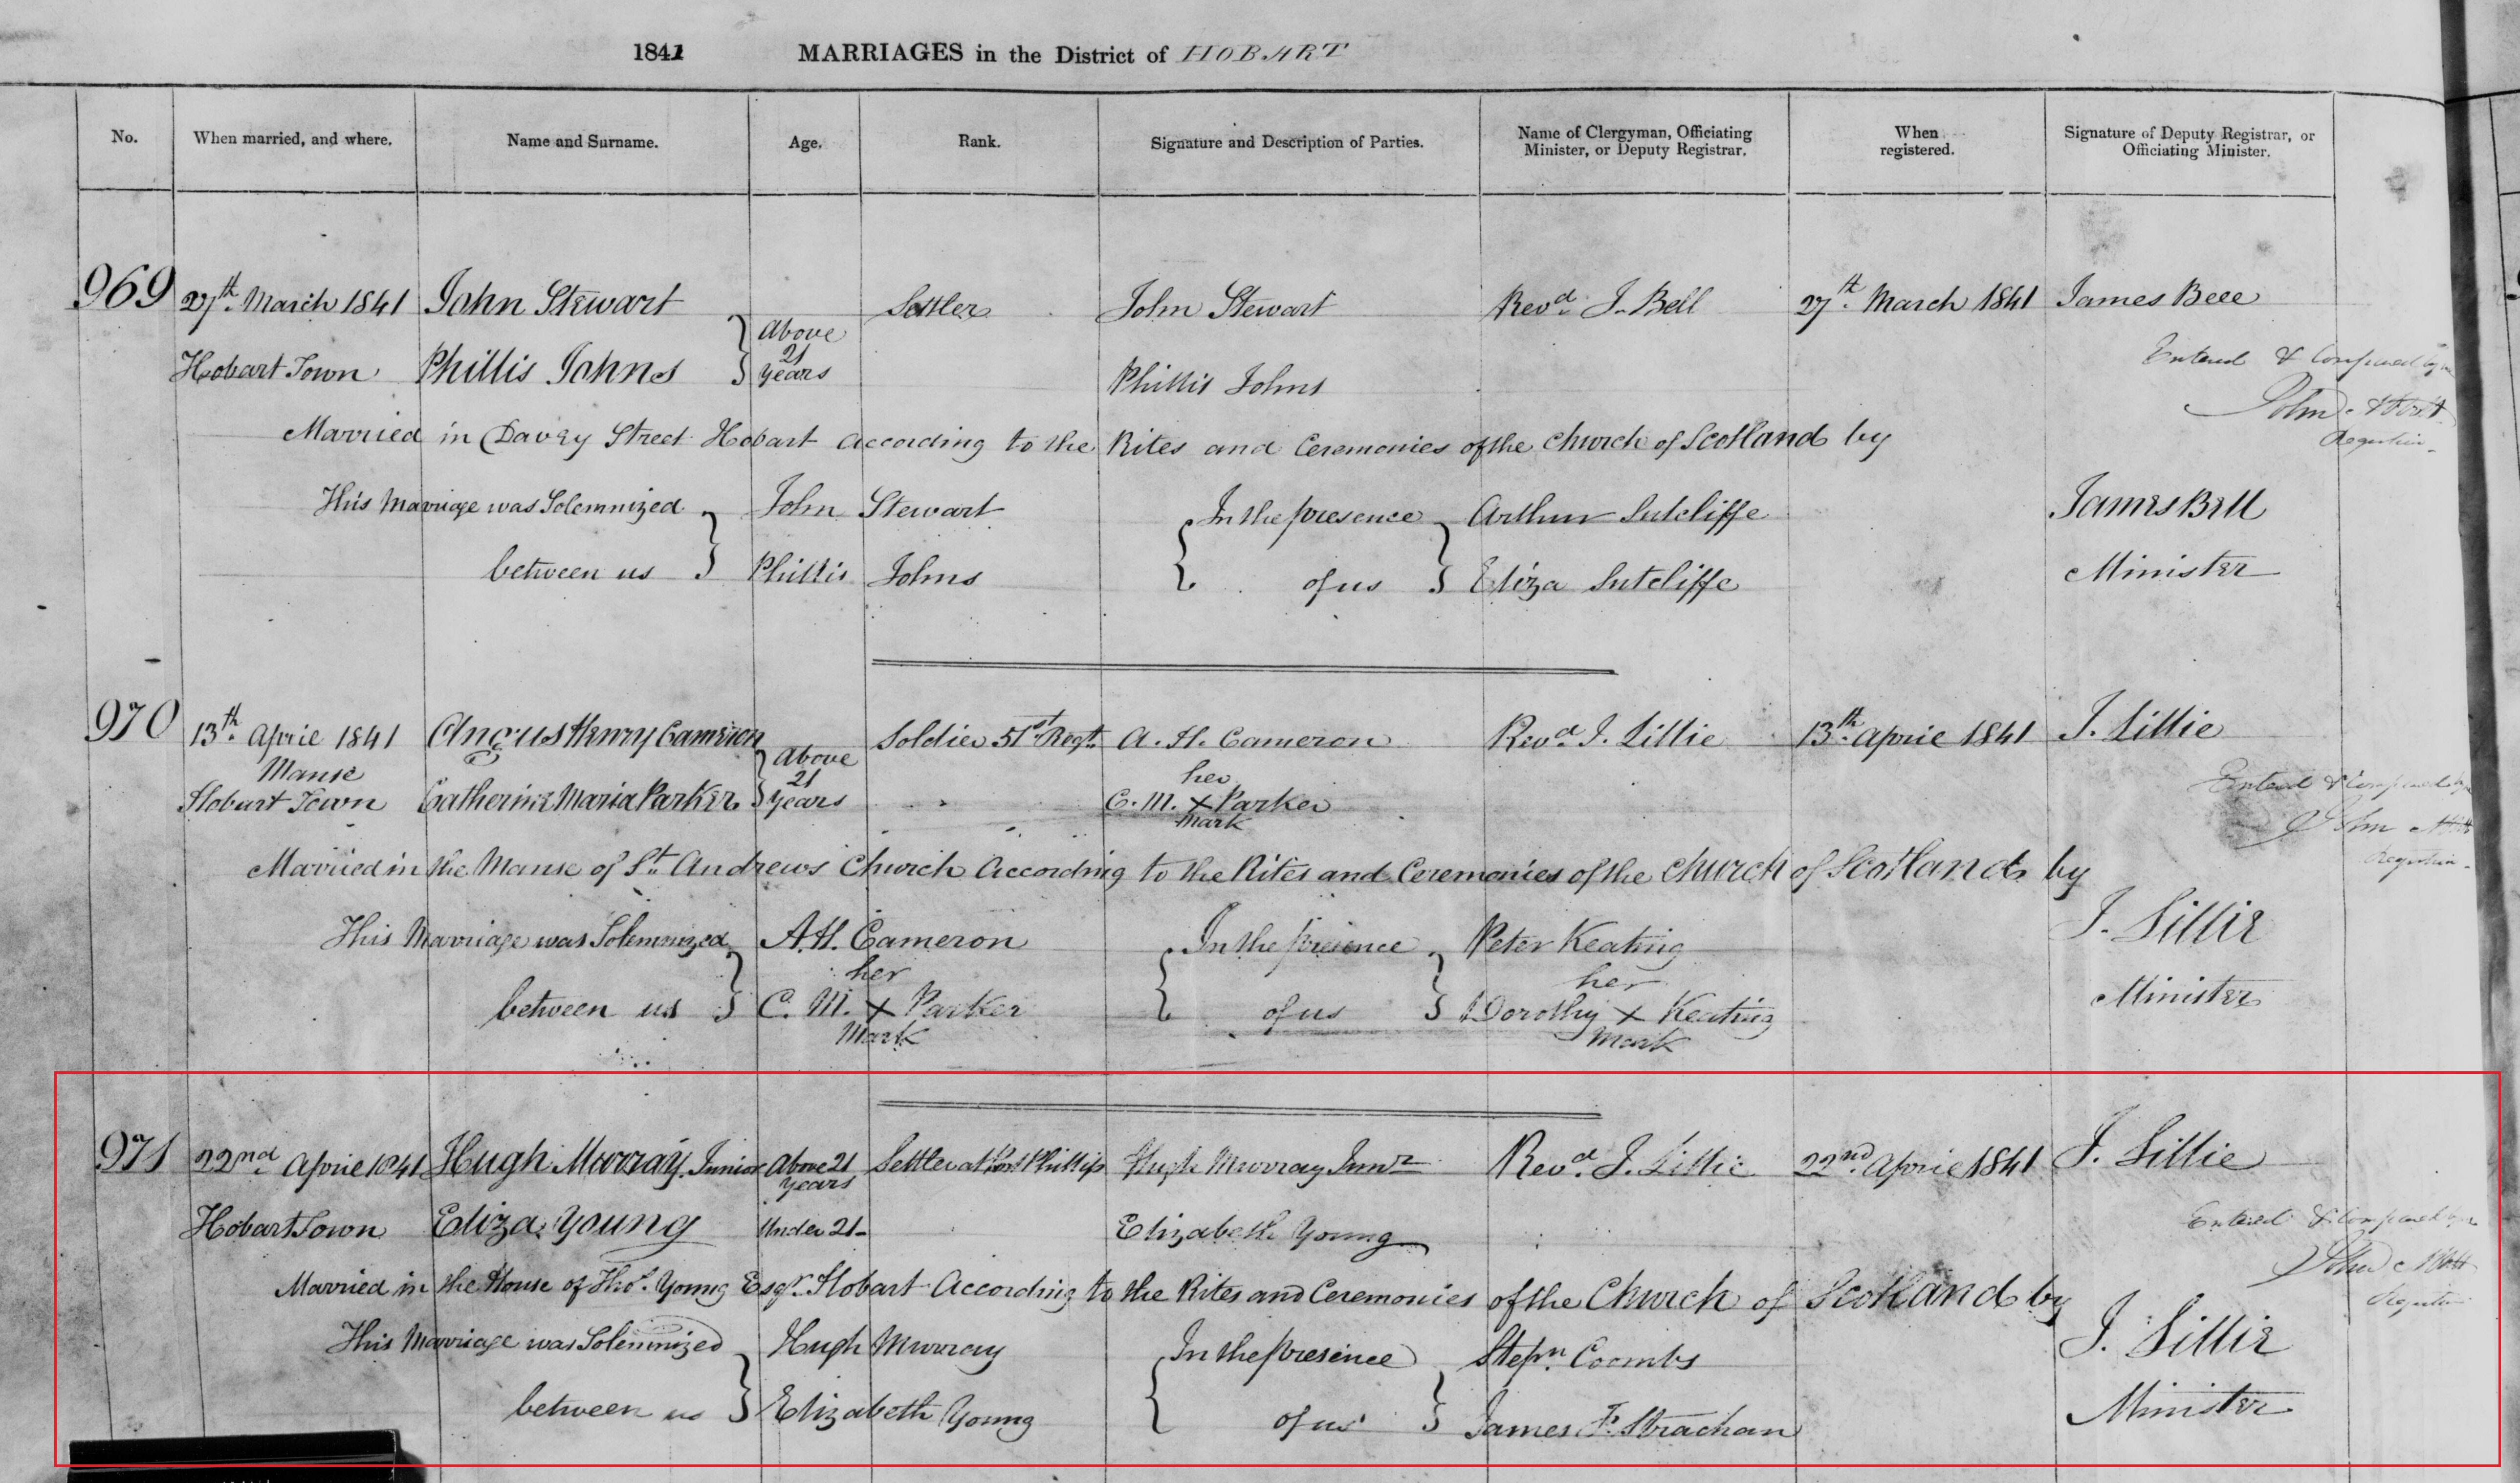 1841 MARRIAGES in the District of HOBART
No. When married, and where. Name and Surname. Age. Rank. Signature and Description of Parties. Name of Clergyman, Officiating Minister, or Deputy Registrar. When registered. Signature of Deputy Registrar, or Officiating Minister.
969 27th March 1841 John Stewart Settler John Stewart Revd. J. Bell 27th March 1841 James Bell
Above 21 years
Hobart Town Phillis Johns Phillis Johns
Entered & Compared by me
John Abbott
Registrar
Married in Davey Street Hobart According to the Rites and Ceremonies of the Church of Scotland by
This Marriage was Solemnized John Stewart In the presence Arthur Sutcliffe James Bell
between us Phillis Johns of us Eliza Sutcliffe Minister
970 13th April 1841 Angus Henry Cameron Soldier 51st Regt. A. H. Cameron Revd. J. Lillie 13th April 1841 J. Lillie
Manse Above 21 years her
Hobart Town Catherine Maria Parker C. M. X Parker
mark
Entered & Compared by me
John Abbott
Registrar
Married in the Manse of St. Andrews Church According to the Rites and Ceremonies of the Church of Scotland by
This Marriage was Solemnized A. H. Cameron In the presence Peter Keating J. Lillie
her her
between us C. M. X Parker of us Dorothy X Keating Minister
Mark Mark
971 22nd April 1841 Hugh Murray Junior Above 21 years Settler at Port Phillip Hugh Murray Junr Revd. J. Lillie 22nd April 1841 J. Lillie
Hobart Town Eliza Young Under 21 Elizabeth Young
Entered & Compared by me
John Abbott
Registrar
Married in the House of Thos. Young Esqr. Hobart According to the Rites and Ceremonies of the Church of Scotland by
This Marriage was Solemnized Hugh Murray In the presence Stepn. Coombs J. Lillie
between us Elizabeth Young of us James F. Strachan Minister